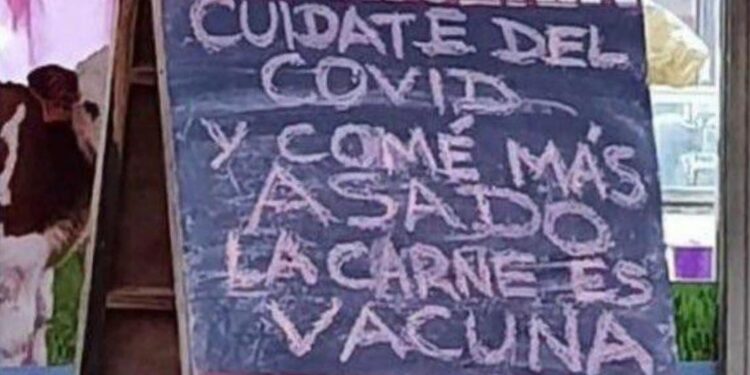 CUIDATE DEL
COVID
Y COMÉ MÁS
ASADO
LA CARNE ES
VACUNA